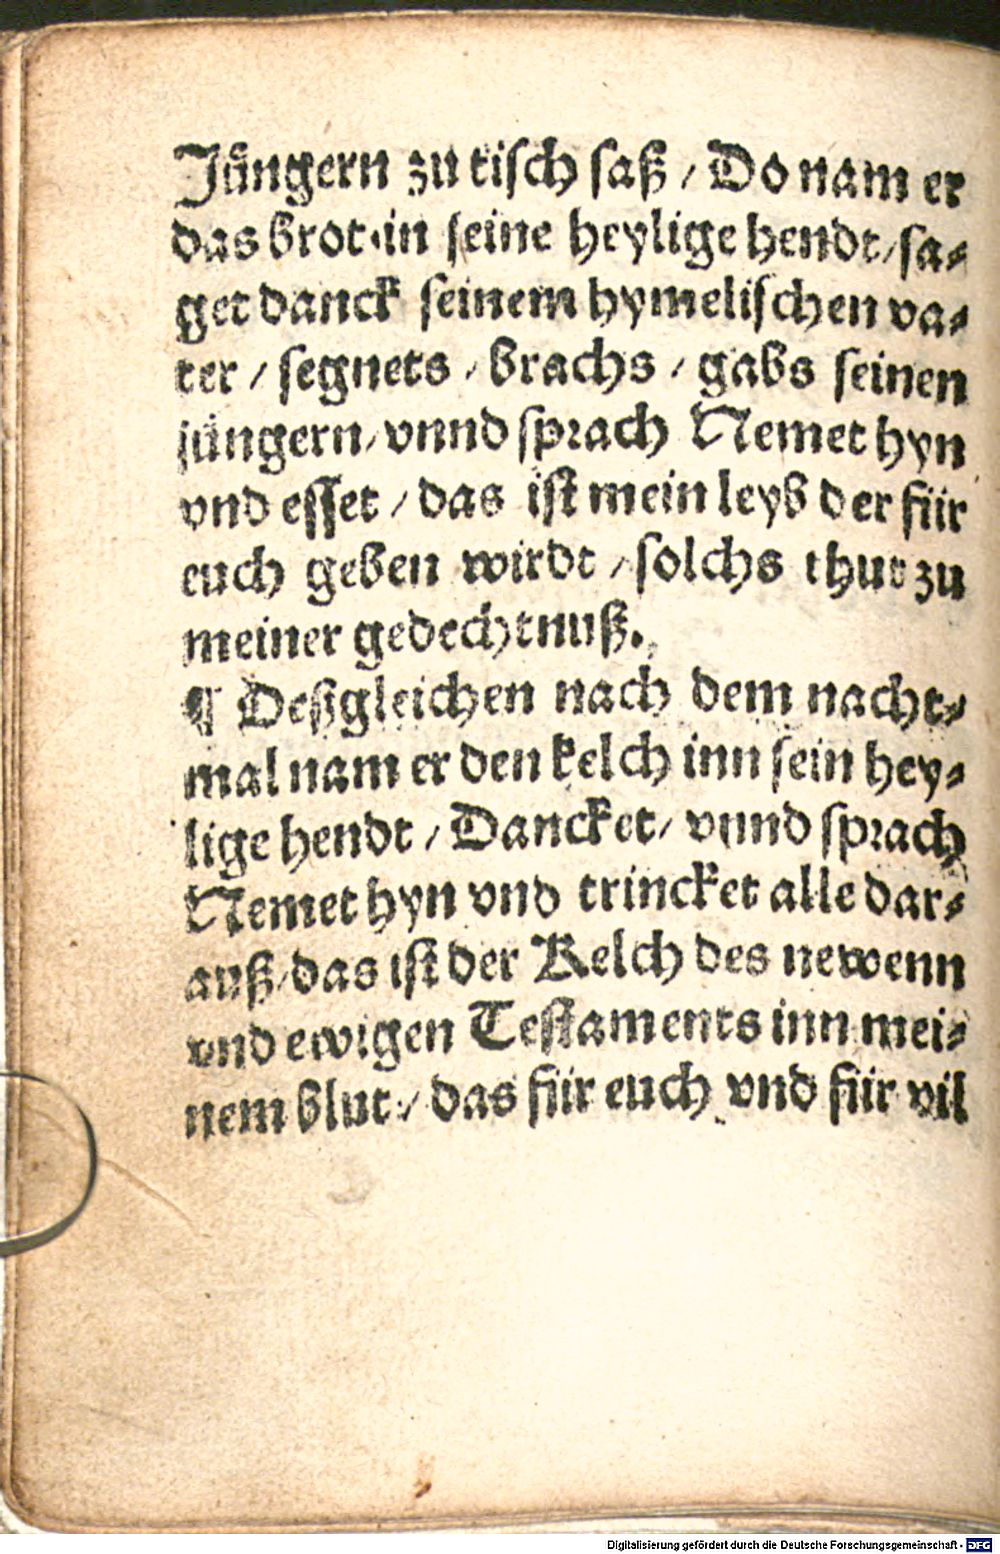 Jüngern zu tisch saß / Do nam er
das brot in seine heylige hendt / sa-
get danck seinem hymelischen va-
ter / segnets / brachs / gabs seinen
jüngern / vnnd sprach Nemet hyn
vnd esset / das ist mein leyb der für
euch geben wirdt / solchs thut zu
meiner gedechtnuß.
¶ Deßgleichen nach dem nacht-
mal nam er den kelch inn sein hey-
lige hendt / Dancket / vnnd sprach
Nemet hyn vnd trincket alle dar-
auß / das ist der Kelch des newenn
vnd ewigen Testaments inn mei-
nem blut / das für euch vnd für vil
Digitalisierung gefördert durch die Deutsche Forschungsgemeinschaft - DFG